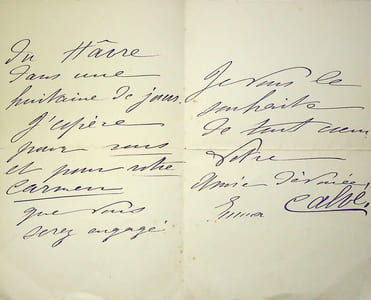 du Hâvre
dans une
huitaine de jours.
J'espère
pour vous
et pour votre
Carmen
que vous
serez engagé
Je vous le
souhaite
de tout cœur
Votre
amie dévouée
Emma Calvé